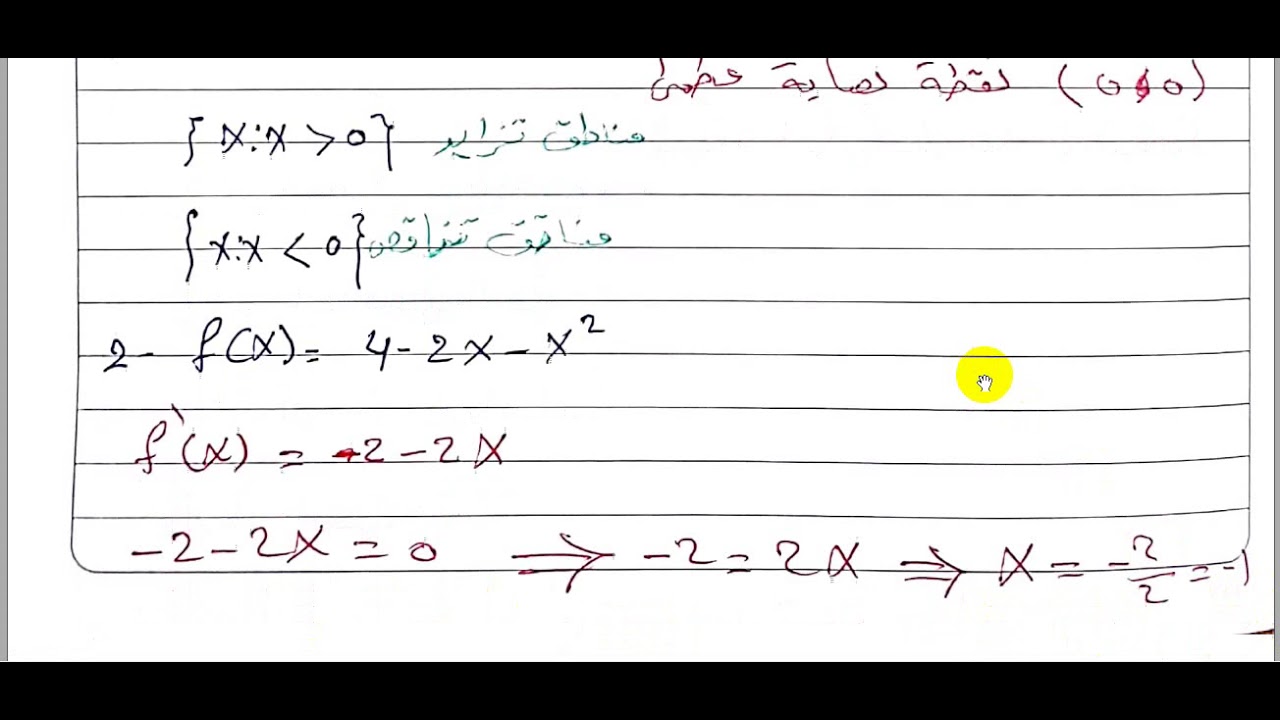 (0,0) نقطة نهاية عظمى
{x:x > 0} مناطق تزايد
{x:x < 0} مناطق تناقص
2- f(x) = 4 - 2x - x²
f`(x) = -2 - 2x
-2 - 2x = 0 ⇒ -2 = 2x ⇒ x = -2/2 = -1